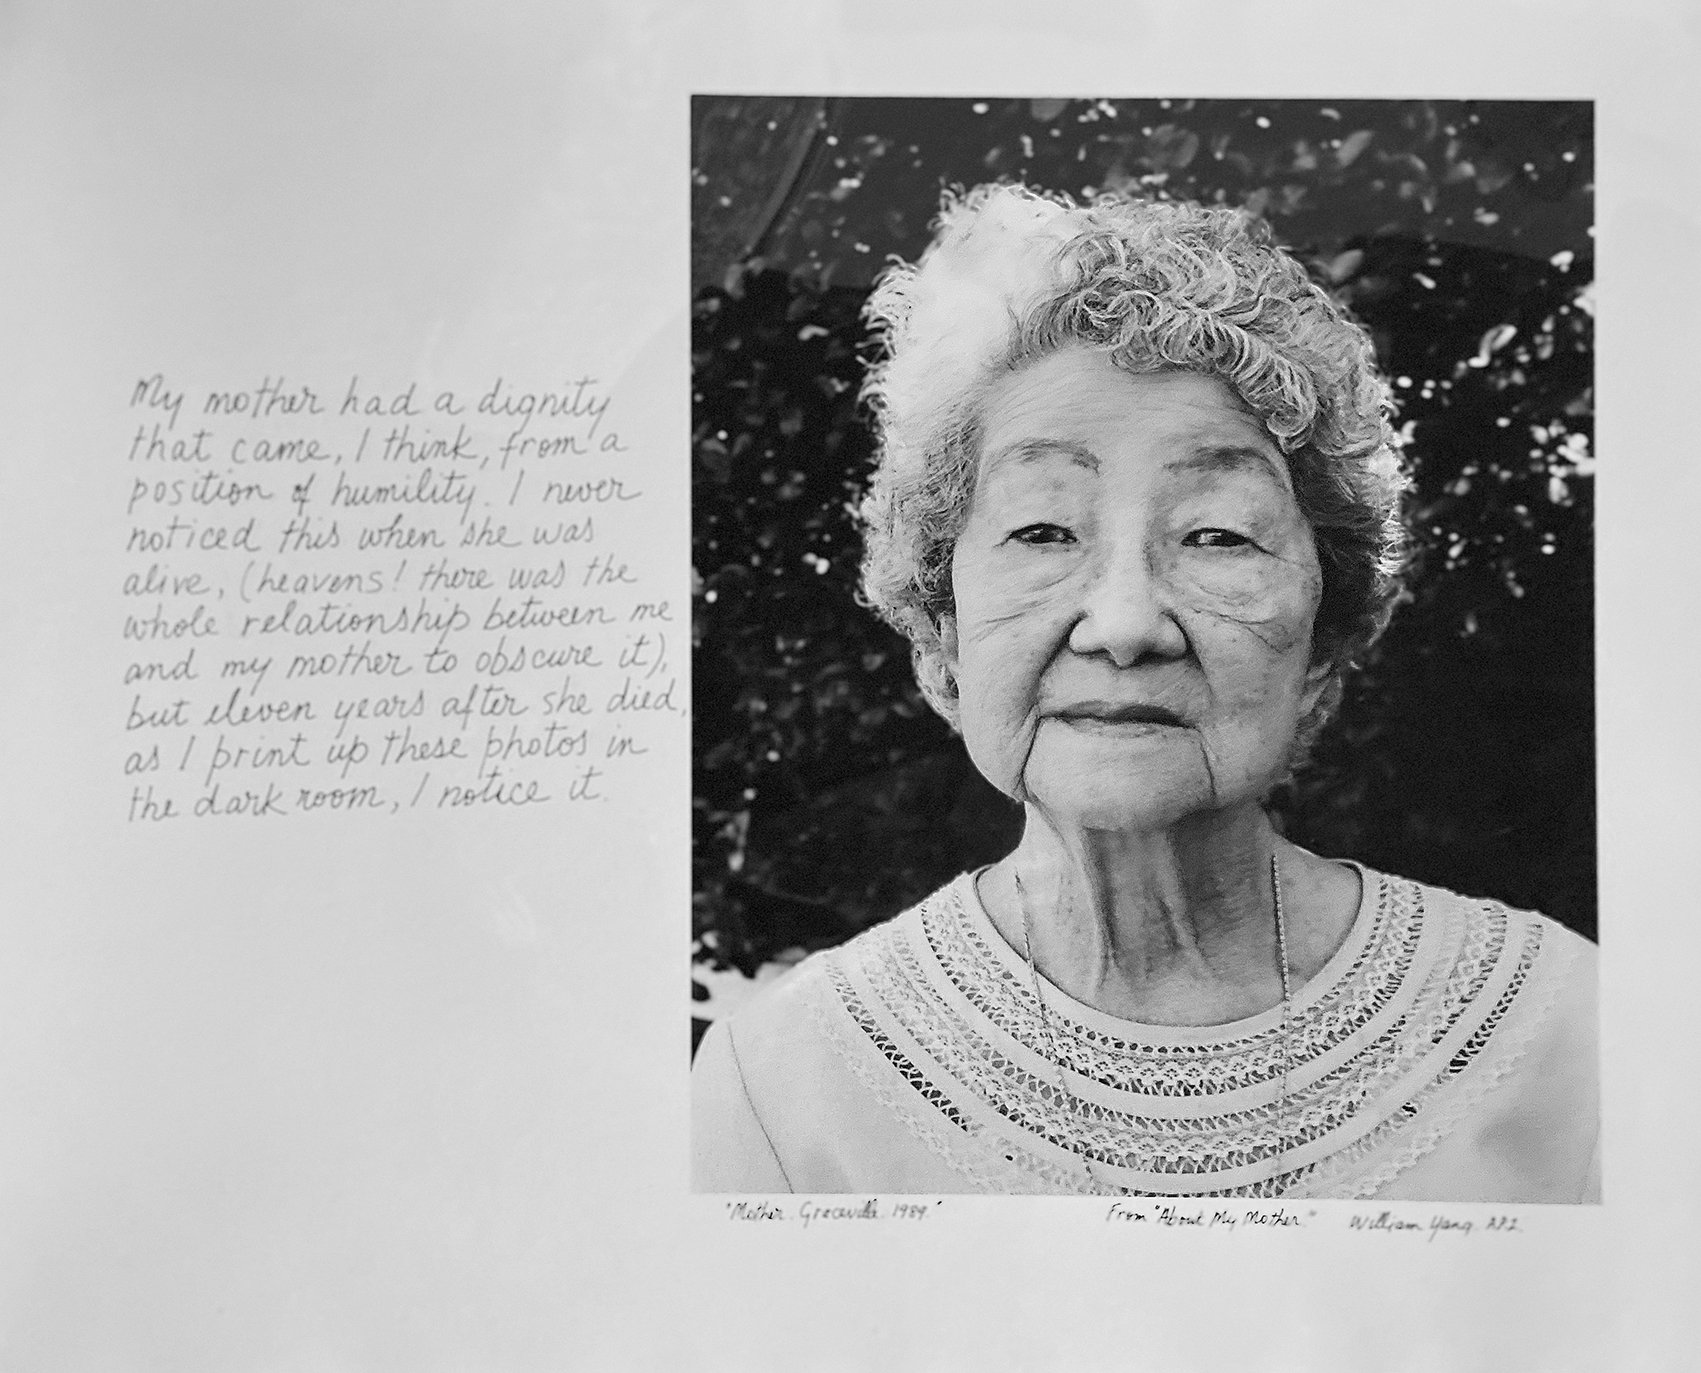 My mother had a dignity
that came, I think, from a
position of humility. I never
noticed this when she was
alive, (heavens! there was the
whole relationship between me
and my mother to obscure it),
but eleven years after she died,
as I print up these photos in
the dark room, I notice it.
"Mother. Graceville. 1989." From "About My Mother." William Yang.